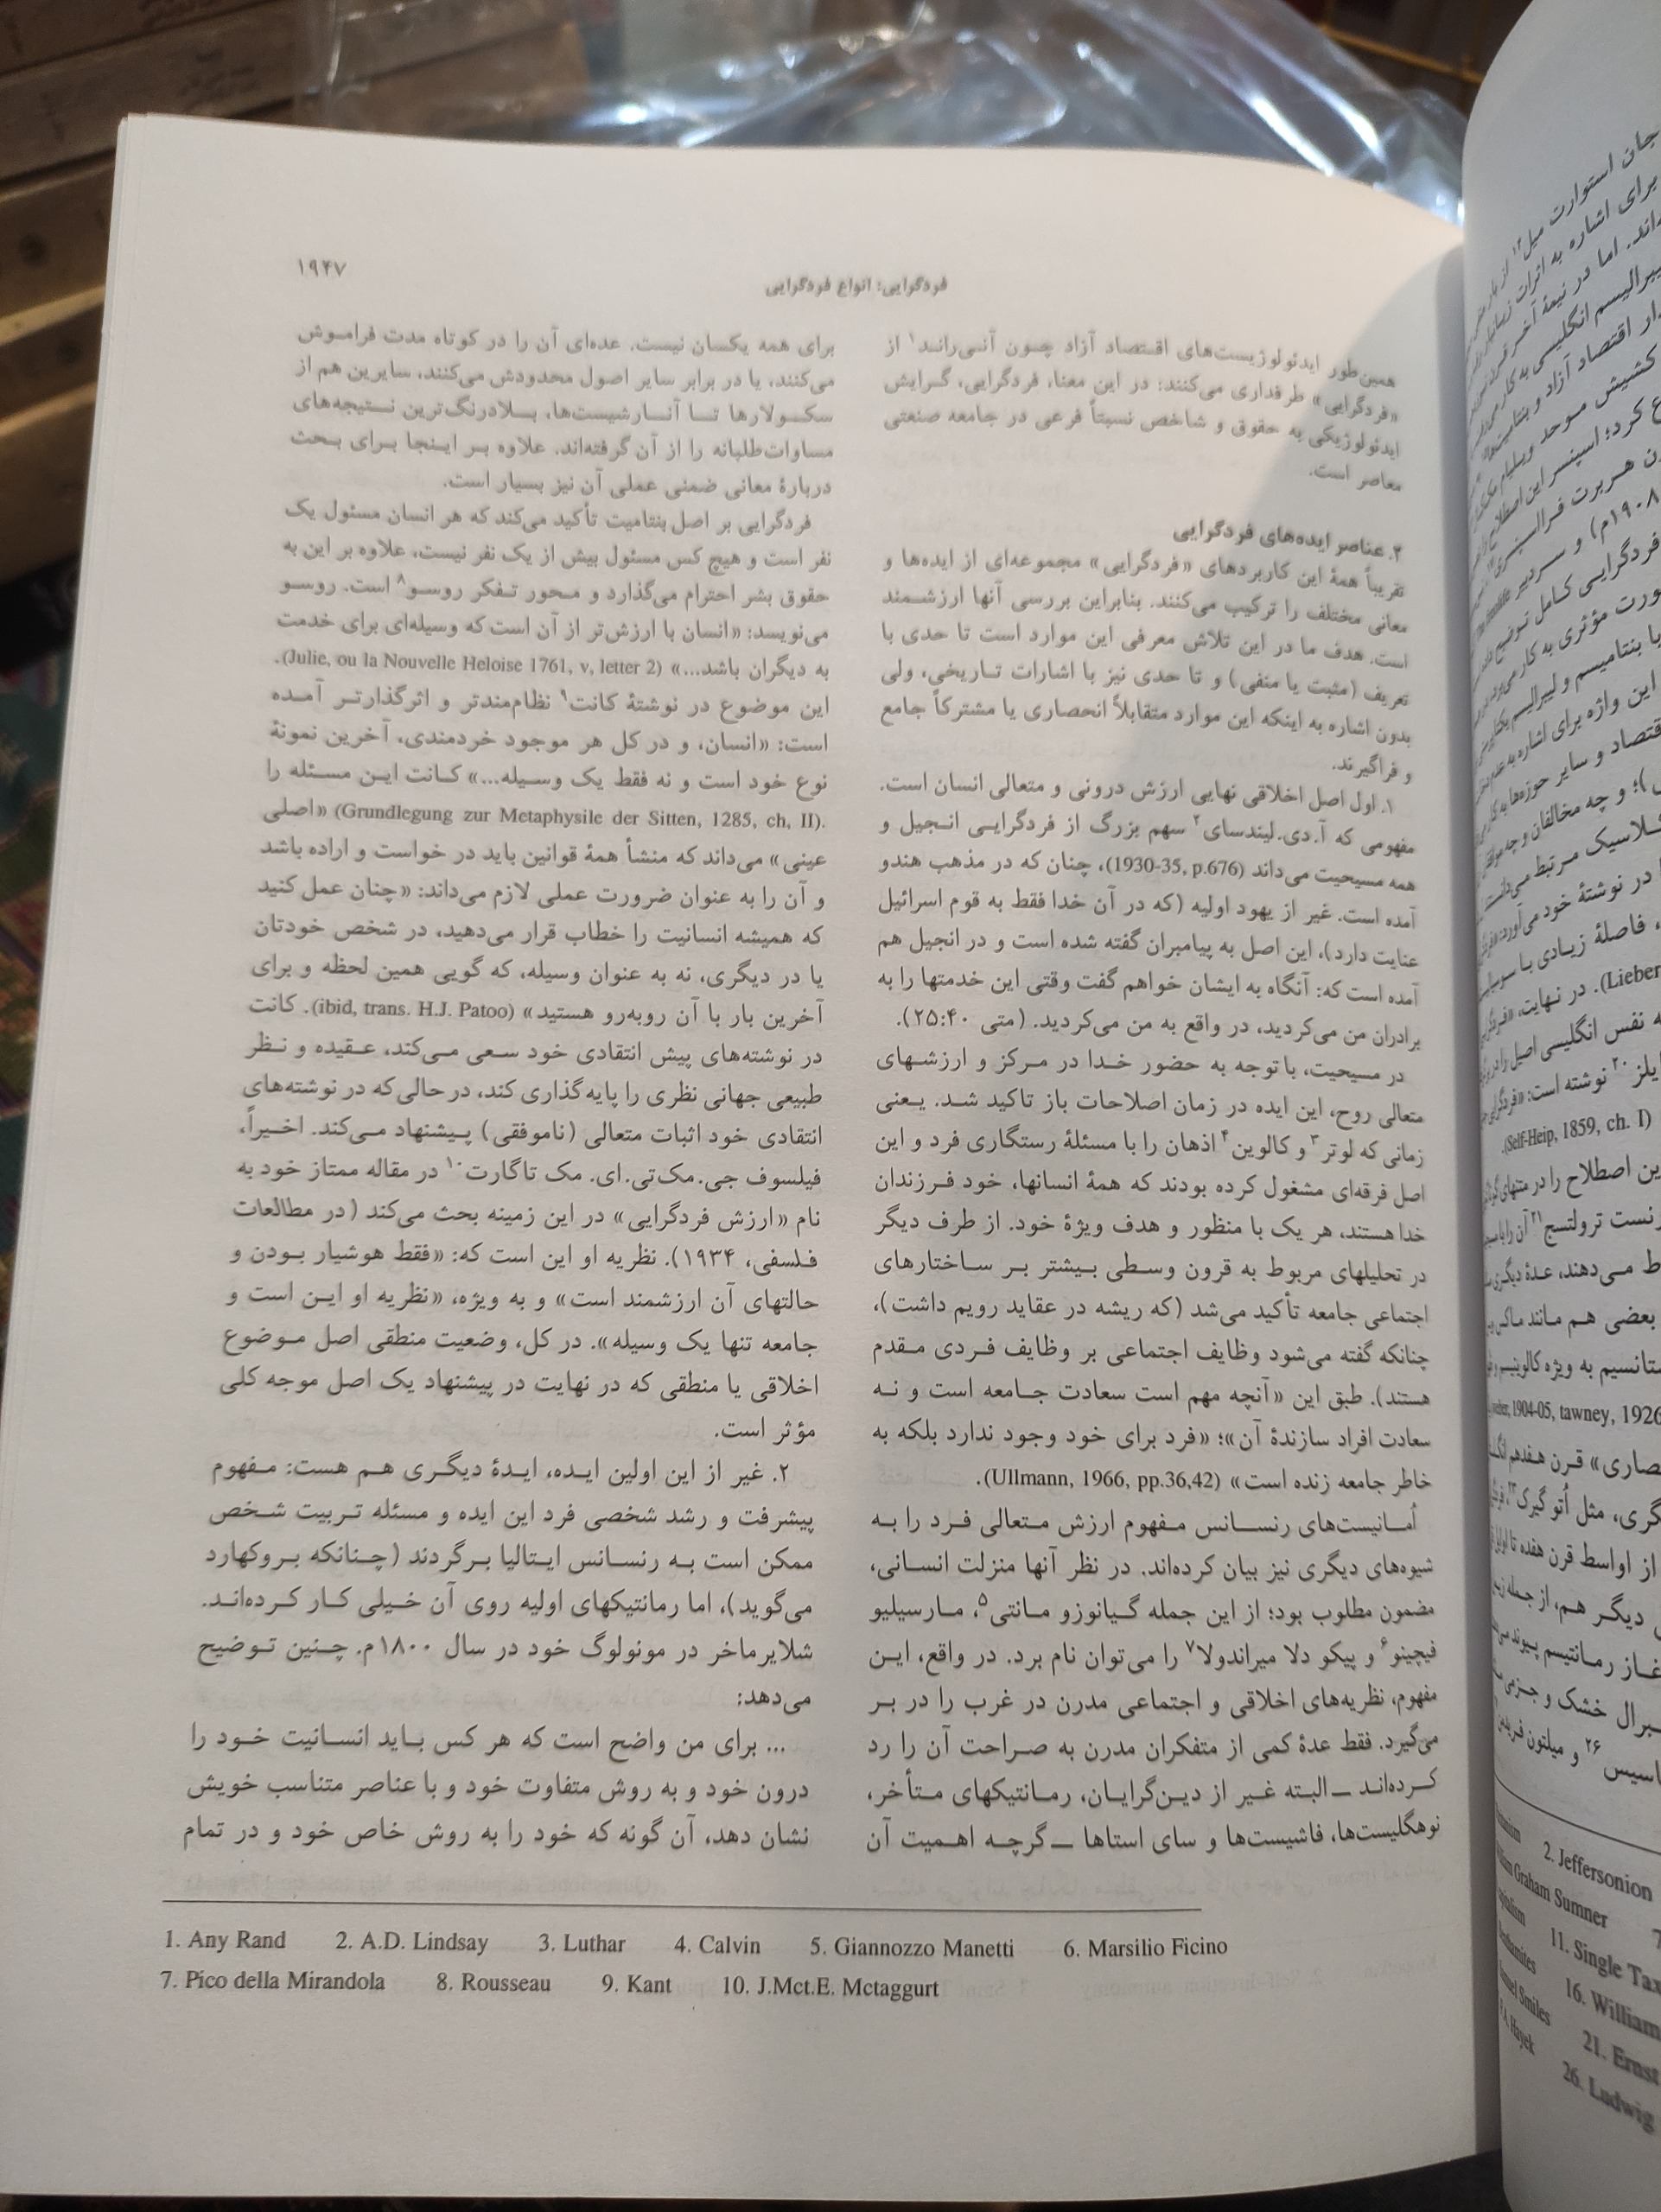 ۱۹۴۷
فردگرایی: انواع فردگرایی
همین‌طور ایدئولوژیست‌های اقتصاد آزاد چون آنی‌راند۱ از
«فردگرایی» طرفداری می‌کنند: در این معنا، فردگرایی، گرایش
ایدئولوژیکی به حقوق و شاخص نسبتاً فرعی در جامعه صنعتی
معاصر است.
۲. عناصر ایده‌های فردگرایی
تقریباً همهٔ این کاربردهای «فردگرایی» مجموعه‌ای از ایده‌ها و
معانی مختلف را ترکیب می‌کنند. بنابراین بررسی آنها ارزشمند
است. هدف ما در این تلاش معرفی این موارد است تا حدی با
تعریف (مثبت یا منفی) و تا حدی نیز با اشارات تاریخی، ولی
بدون اشاره به اینکه این موارد متقابلاً انحصاری یا مشترکاً جامع
و فراگیرند.
۱. اول اصل اخلاقی نهایی ارزش درونی و متعالی انسان است.
مفهومی که آ.دی.لیندسای۲ سهم بزرگ از فردگرایی انجیل و
همه مسیحیت می‌داند (1930-35, p.676)، چنان که در مذهب هندو
آمده است. غیر از یهود اولیه (که در آن خدا فقط به قوم اسرائیل
عنایت دارد)، این اصل به پیامبران گفته شده است و در انجیل هم
آمده است که: آنگاه به ایشان خواهم گفت وقتی این خدمتها را به
برادران من می‌کردید، در واقع به من می‌کردید. (متی ۲۵:۴۰).
در مسیحیت، با توجه به حضور خدا در مرکز و ارزشهای
متعالی روح، این ایده در زمان اصلاحات باز تاکید شد. یعنی
زمانی که لوتر۳ و کالوین۴ اذهان را با مسئلهٔ رستگاری فرد و این
اصل فرقه‌ای مشغول کرده بودند که همهٔ انسانها، خود فرزندان
خدا هستند، هر یک با منظور و هدف ویژهٔ خود. از طرف دیگر
در تحلیلهای مربوط به قرون وسطی بیشتر بر ساختارهای
اجتماعی جامعه تأکید می‌شد (که ریشه در عقاید رویم داشت)،
چنانکه گفته می‌شود وظایف اجتماعی بر وظایف فردی مقدم
هستند). طبق این «آنچه مهم است سعادت جامعه است و نه
سعادت افراد سازندهٔ آن»؛ «فرد برای خود وجود ندارد بلکه به
خاطر جامعه زنده است» (Ullmann, 1966, pp.36,42).
اُمانیست‌های رنسانس مفهوم ارزش متعالی فرد را به
شیوه‌های دیگری نیز بیان کرده‌اند. در نظر آنها منزلت انسانی،
مضمون مطلوب بود؛ از این جمله گیانوزو مانتی۵، مارسیلیو
فیچینو۶ و پیکو دلا میراندولا۷ را می‌توان نام برد. در واقع، این
مفهوم، نظریه‌های اخلاقی و اجتماعی مدرن در غرب را در بر
می‌گیرد. فقط عدهٔ کمی از متفکران مدرن به صراحت آن را رد
کرده‌اند ــ البته غیر از دین‌گرایان، رمانتیکهای متأخر،
نوهگلیست‌ها، فاشیست‌ها و سای استاها ــ گرچه اهمیت آن
برای همه یکسان نیست. عده‌ای آن را در کوتاه مدت فراموش
می‌کنند، یا در برابر سایر اصول محدودش می‌کنند، سایرین هم از
سکولارها تا آنارشیست‌ها، بلادرنگ‌ترین نتیجه‌های
مساوات‌طلبانه را از آن گرفته‌اند. علاوه بر اینجا برای بحث
دربارهٔ معانی ضمنی عملی آن نیز بسیار است.
فردگرایی بر اصل بنتامیت تأکید می‌کند که هر انسان مسئول یک
نفر است و هیچ کس مسئول بیش از یک نفر نیست، علاوه بر این به
حقوق بشر احترام می‌گذارد و محور تفکر روسو۸ است. روسو
می‌نویسد: «انسان با ارزش‌تر از آن است که وسیله‌ای برای خدمت
به دیگران باشد...» (Julie, ou la Nouvelle Heloise 1761, v, letter 2).
این موضوع در نوشتهٔ کانت۹ نظام‌مندتر و اثرگذارتر آمده
است: «انسان، و در کل هر موجود خردمندی، آخرین نمونهٔ
نوع خود است و نه فقط یک وسیله...» کانت این مسئله را
(Grundlegung zur Metaphysile der Sitten, 1285, ch, II). «اصلی
عینی» می‌داند که منشأ همهٔ قوانین باید در خواست و اراده باشد
و آن را به عنوان ضرورت عملی لازم می‌داند: «چنان عمل کنید
که همیشه انسانیت را خطاب قرار می‌دهید، در شخص خودتان
یا در دیگری، نه به عنوان وسیله، که گویی همین لحظه و برای
آخرین بار با آن روبه‌رو هستید» (ibid, trans. H.J. Patoo). کانت
در نوشته‌های پیش انتقادی خود سعی می‌کند، عقیده و نظر
طبیعی جهانی نظری را پایه‌گذاری کند، در حالی‌که در نوشته‌های
انتقادی خود اثبات متعالی (ناموفقی) پیشنهاد می‌کند. اخیراً،
فیلسوف جی.مک‌تی.ای. مک تاگارت۱۰ در مقاله ممتاز خود به
نام «ارزش فردگرایی» در این زمینه بحث می‌کند (در مطالعات
فلسفی، ۱۹۳۴). نظریه او این است که: «فقط هوشیار بودن و
حالتهای آن ارزشمند است» و به ویژه، «نظریه او این است و
جامعه تنها یک وسیله». در کل، وضعیت منطقی اصل موضوع
اخلاقی یا منطقی که در نهایت در پیشنهاد یک اصل موجه کلی
مؤثر است.
۲. غیر از این اولین ایده، ایدهٔ دیگری هم هست: مفهوم
پیشرفت و رشد شخصی فرد این ایده و مسئله تربیت شخص
ممکن است به رنسانس ایتالیا برگردند (چنانکه بروکهارد
می‌گوید)، اما رمانتیکهای اولیه روی آن خیلی کار کرده‌اند.
شلایرماخر در مونولوگ خود در سال ۱۸۰۰م. چنین توضیح
می‌دهد:
... برای من واضح است که هر کس باید انسانیت خود را
درون خود و به روش متفاوت خود و با عناصر متناسب خویش
نشان دهد، آن گونه که خود را به روش خاص خود و در تمام
1. Any Rand 2. A.D. Lindsay 3. Luthar 4. Calvin 5. Giannozzo Manetti 6. Marsilio Ficino
7. Pico della Mirandola 8. Rousseau 9. Kant 10. J.Mct.E. Mctaggurt
جان استوارت میل
برای اشاره به اثرات
(Self-Heip, 1859, ch. I).
1904-05, tawney, 1926
2. Jeffersonion
Graham Sumner
11. Single Tax
16. William
Smiles
21. Ernst
Hayek
26. Ludwig